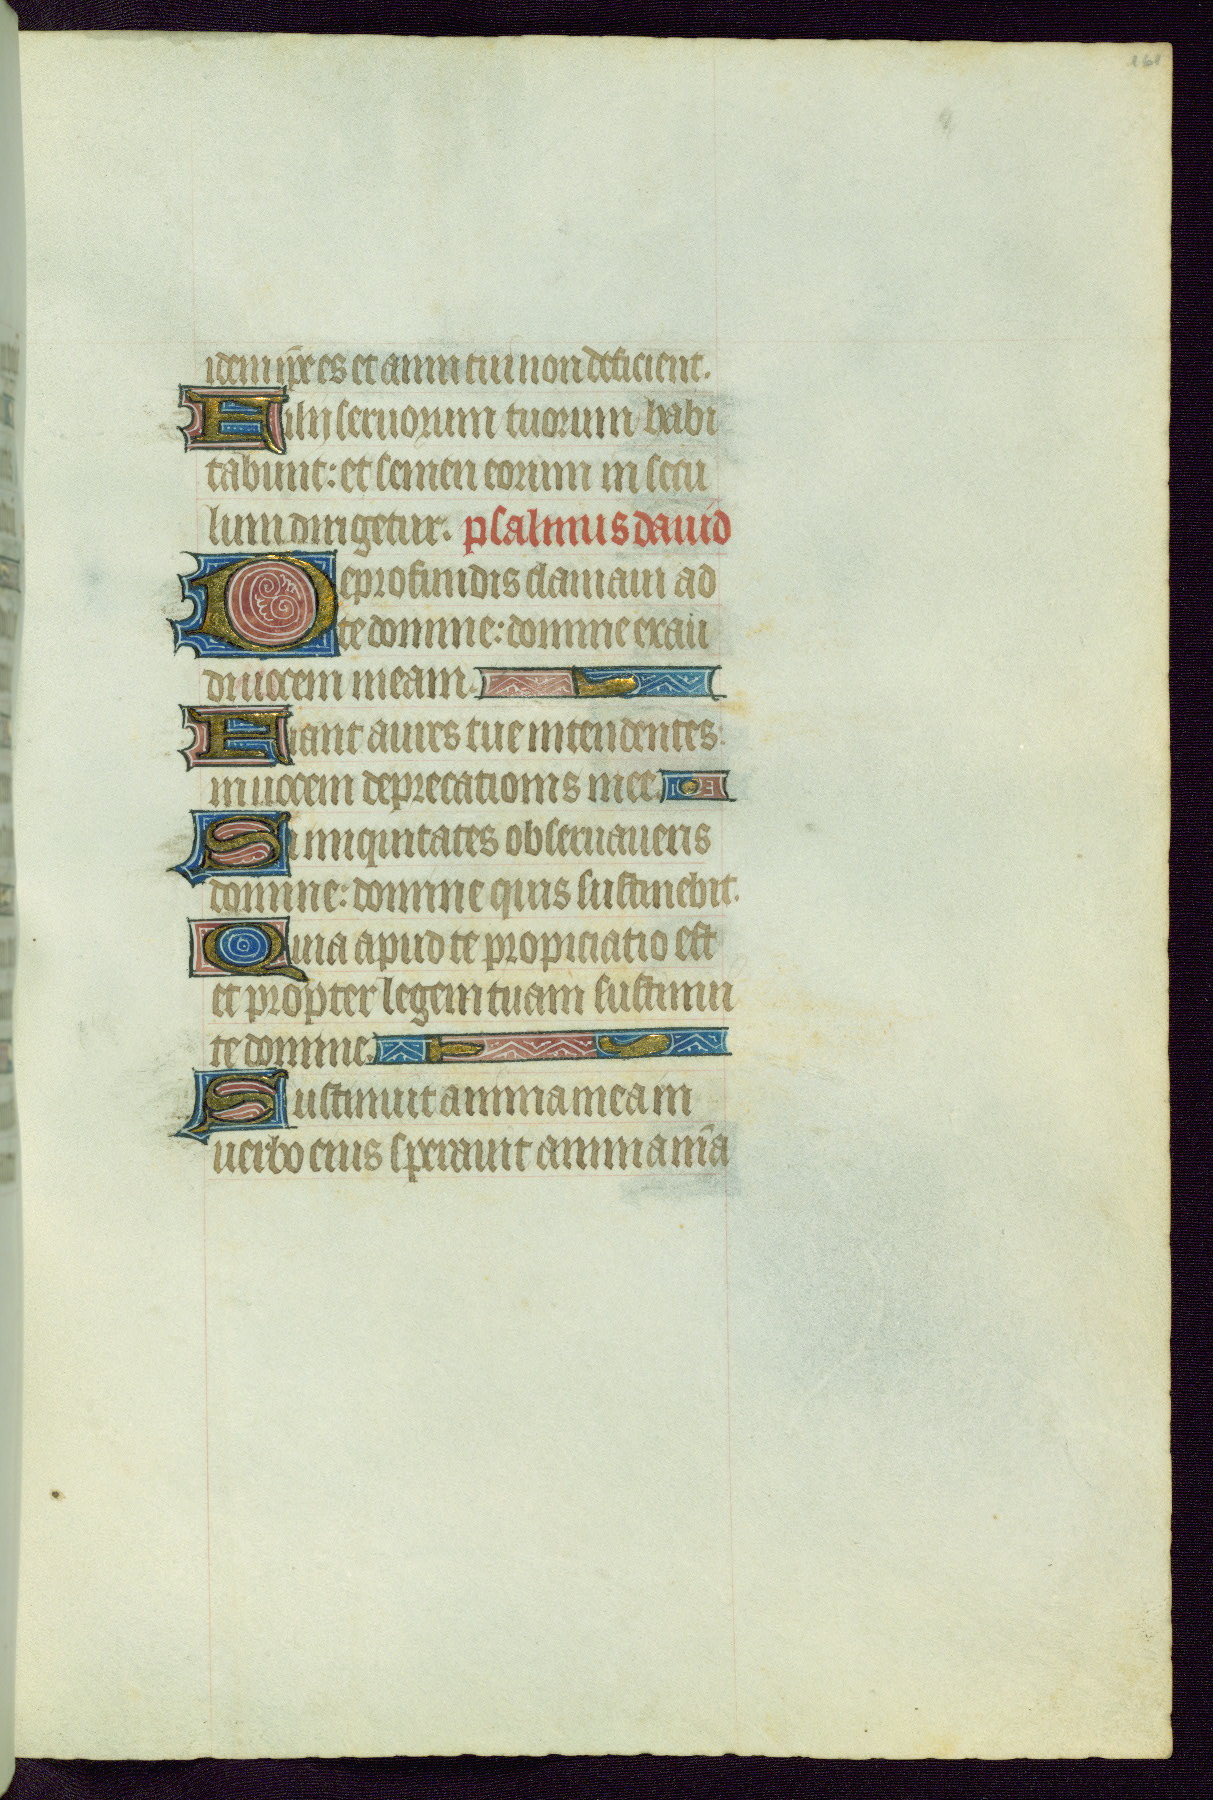 161
idem ip̄e es et anni tui non deficient.
Filij seruorum tuorum habi
tabunt: et semen eorum in secu
lum dirigetur. psalmus dauid
De profundis clamaui ad
te domine: domine exau
di uocem meam.
Fiant aures tue intendentes:
in uocem deprecationis mee.
Si iniquitates obseruaueris
domine: domine quis sustinebit.
Quia apud te propiciatio est
et propter legem tuam sustinui
te domine.
Sustinuit anima mea in
uerbo eius sperauit anima m̄a